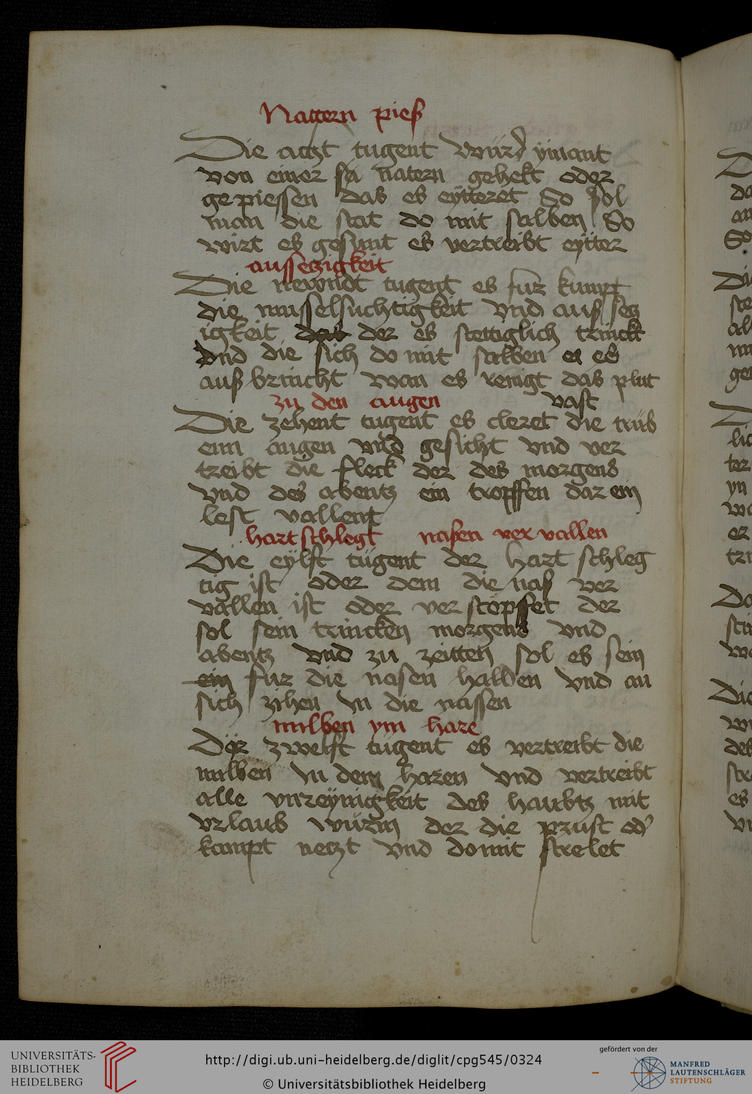 Nattern pieß
Die acht tugent würd ymant
von einer natern gehekt oder
gepiessen das es eytteret So sol
man die stat do mit salben So
wirt es gesunt es vertreibt eytter
aussetzigkeit
Die newndt tugent es fur kumpt
die musselsuchtigkeit vnd auß setz
igkeit der es stettiglich trinckt
vnd die sich do mit salben es
auß bricht wan es renigt das plut
zu den augen vast
Die zehent tugent es cleret die trüb
enn augen vnd gesicht vnd ver
treibt die fleck der des morgens
vnd des abentz ein tropffen dar ein
lest vallent
hartschlegt nasen ver vallen
Die eylft tugent der hart schleg
tig ist oder dem die nas ver
vallen ist oder ver stopfet der
sol sein trincken morgens vnd
abentz vnd zu zeitten sol es sein
fur die nasen halden vnd an
sich zihen in die nassen
milben ym hare
Der zwelft tugent es vertreibt die
milben in dem haren vnd vertreibt
alle vnreynigkeit des haubtz mit
vrlaub würm der die pürst od'
kampt netzt vnd domit strelet
UNIVERSITÄTS-
BIBLIOTHEK
HEIDELBERG
http://digi.ub.uni-heidelberg.de/diglit/cpg545/0324
© Universitätsbibliothek Heidelberg
gefördert von der
MANFRED
LAUTENSCHLÄGER
STIFTUNG